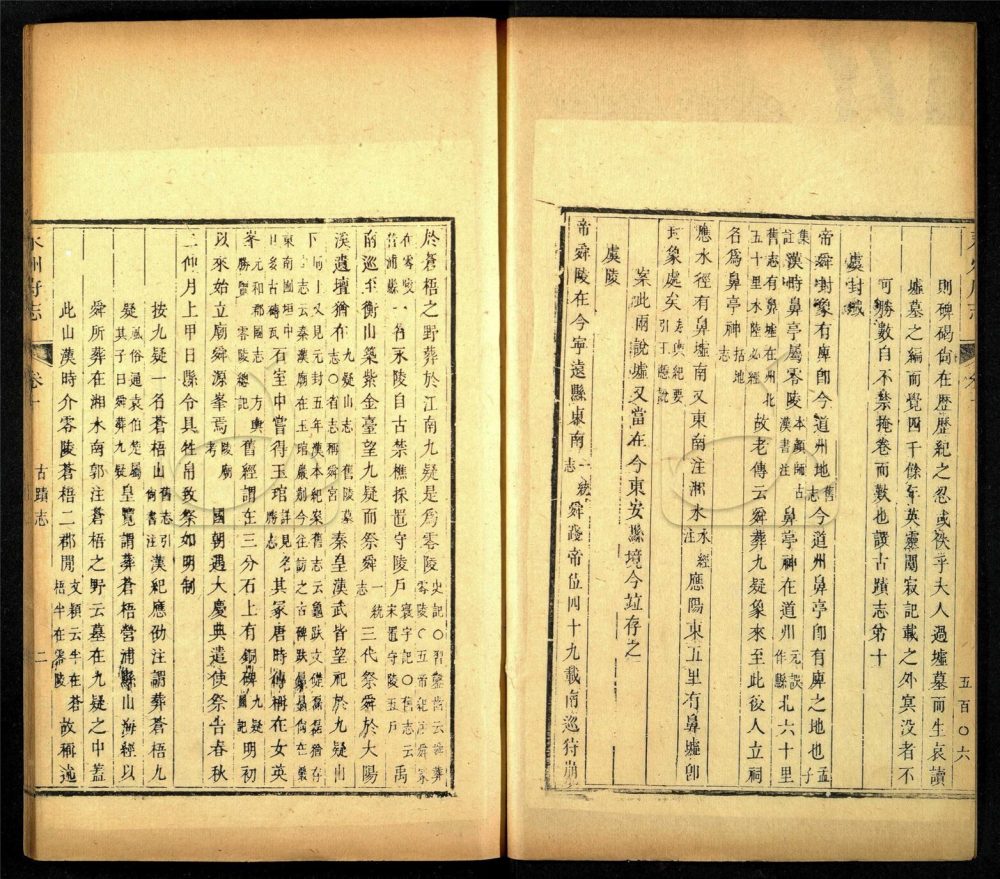 則碑碣尙在歷歷紀之忍或軼乎大人過墟墓而生哀讀
墟墓之編而覺四千餘年英靈闃寂記載之外冥没者不
可勝數自不禁掩卷而歎也譔古蹟志第十
虞封域
帝舜封象有庳卽今道州地舊志今道州鼻亭卽有庳之地也孟子
集註漢時鼻亭屬零陵本顏師古漢書注鼻亭神在道州元誤作縣北六十里
舊志有鼻墟在州北五十里水陸必經故老傳云舜葬九疑象來至此後人立祠
名爲鼻亭神括地志
應水徑有鼻墟南又東南注湘水水經注應陽東五里有鼻墟卽
封象處矣引王隱說
案此兩說墟又當在今東安縣境今竝存之
虞陵
帝舜陵在今寧遠縣東南一統志舜踐帝位四十九載南巡狩崩
五百〇六
於蒼梧之野葬於江南九疑是爲零陵史記〇
在零陵營浦縣一名永陵自古禁樵採置守陵戶寰宇記〇舊志云宋置守陵五戶禹
南巡至衡山築紫金臺望九疑而祭舜一統志三代祭舜於大陽
溪遺壇猶在九疑山志〇舊陵墓志〇省志稱舜宮秦皇漢武皆望祀於九疑山
石室中嘗得玉琯詳見名勝志其冢唐時傳稱在女英
峯元和郡國志方輿勝覽零陵總記舊經謂在三分石上有銅碑九疑圖記明初
以來始立廟舜源峯焉陵廟考國朝遇大慶典遣使祭告春秋
二仲月上甲日縣令具牲帛致祭如明制
按九疑一名蒼梧山舊志引尙書注漢紀應劭注謂葬蒼梧九
疑風俗通袁伯楚屬其子曰舜葬九疑皇覽謂葬蒼梧營浦縣山海經以
舜所葬在湘水南郭注蒼梧之野云墓在九疑之中蓋
此山漢時介零陵蒼梧二郡閒文穎云半在蒼梧半在零陵故稱述
永州府志
卷十
古蹟志
二